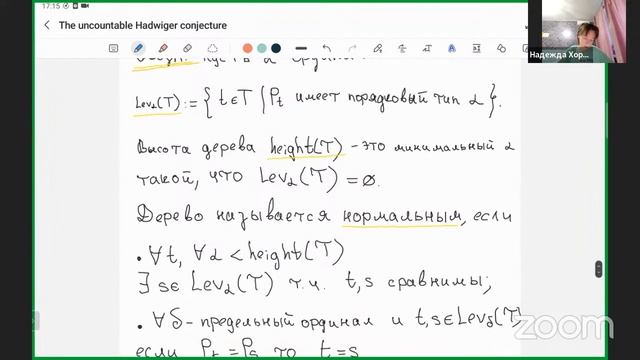 17:15
The uncountable Hadwiger conjecture
Надежда Хор...
пусть α
Lev_α(T) := { t ∈ T | P_t имеет порядковый тип α }.
Высота дерева height(T) – это минимальный α
такой, что Lev_α(T) = ∅.
Дерево называется нормальным, если
• ∀t, ∀α < height(T)
∃ s ∈ Lev_α(T) т.ч. t, s сравнимы;
• ∀δ – предельный ординал и t, s ∈ Lev_δ(T),
если P_t = P_s то t = s
zoom